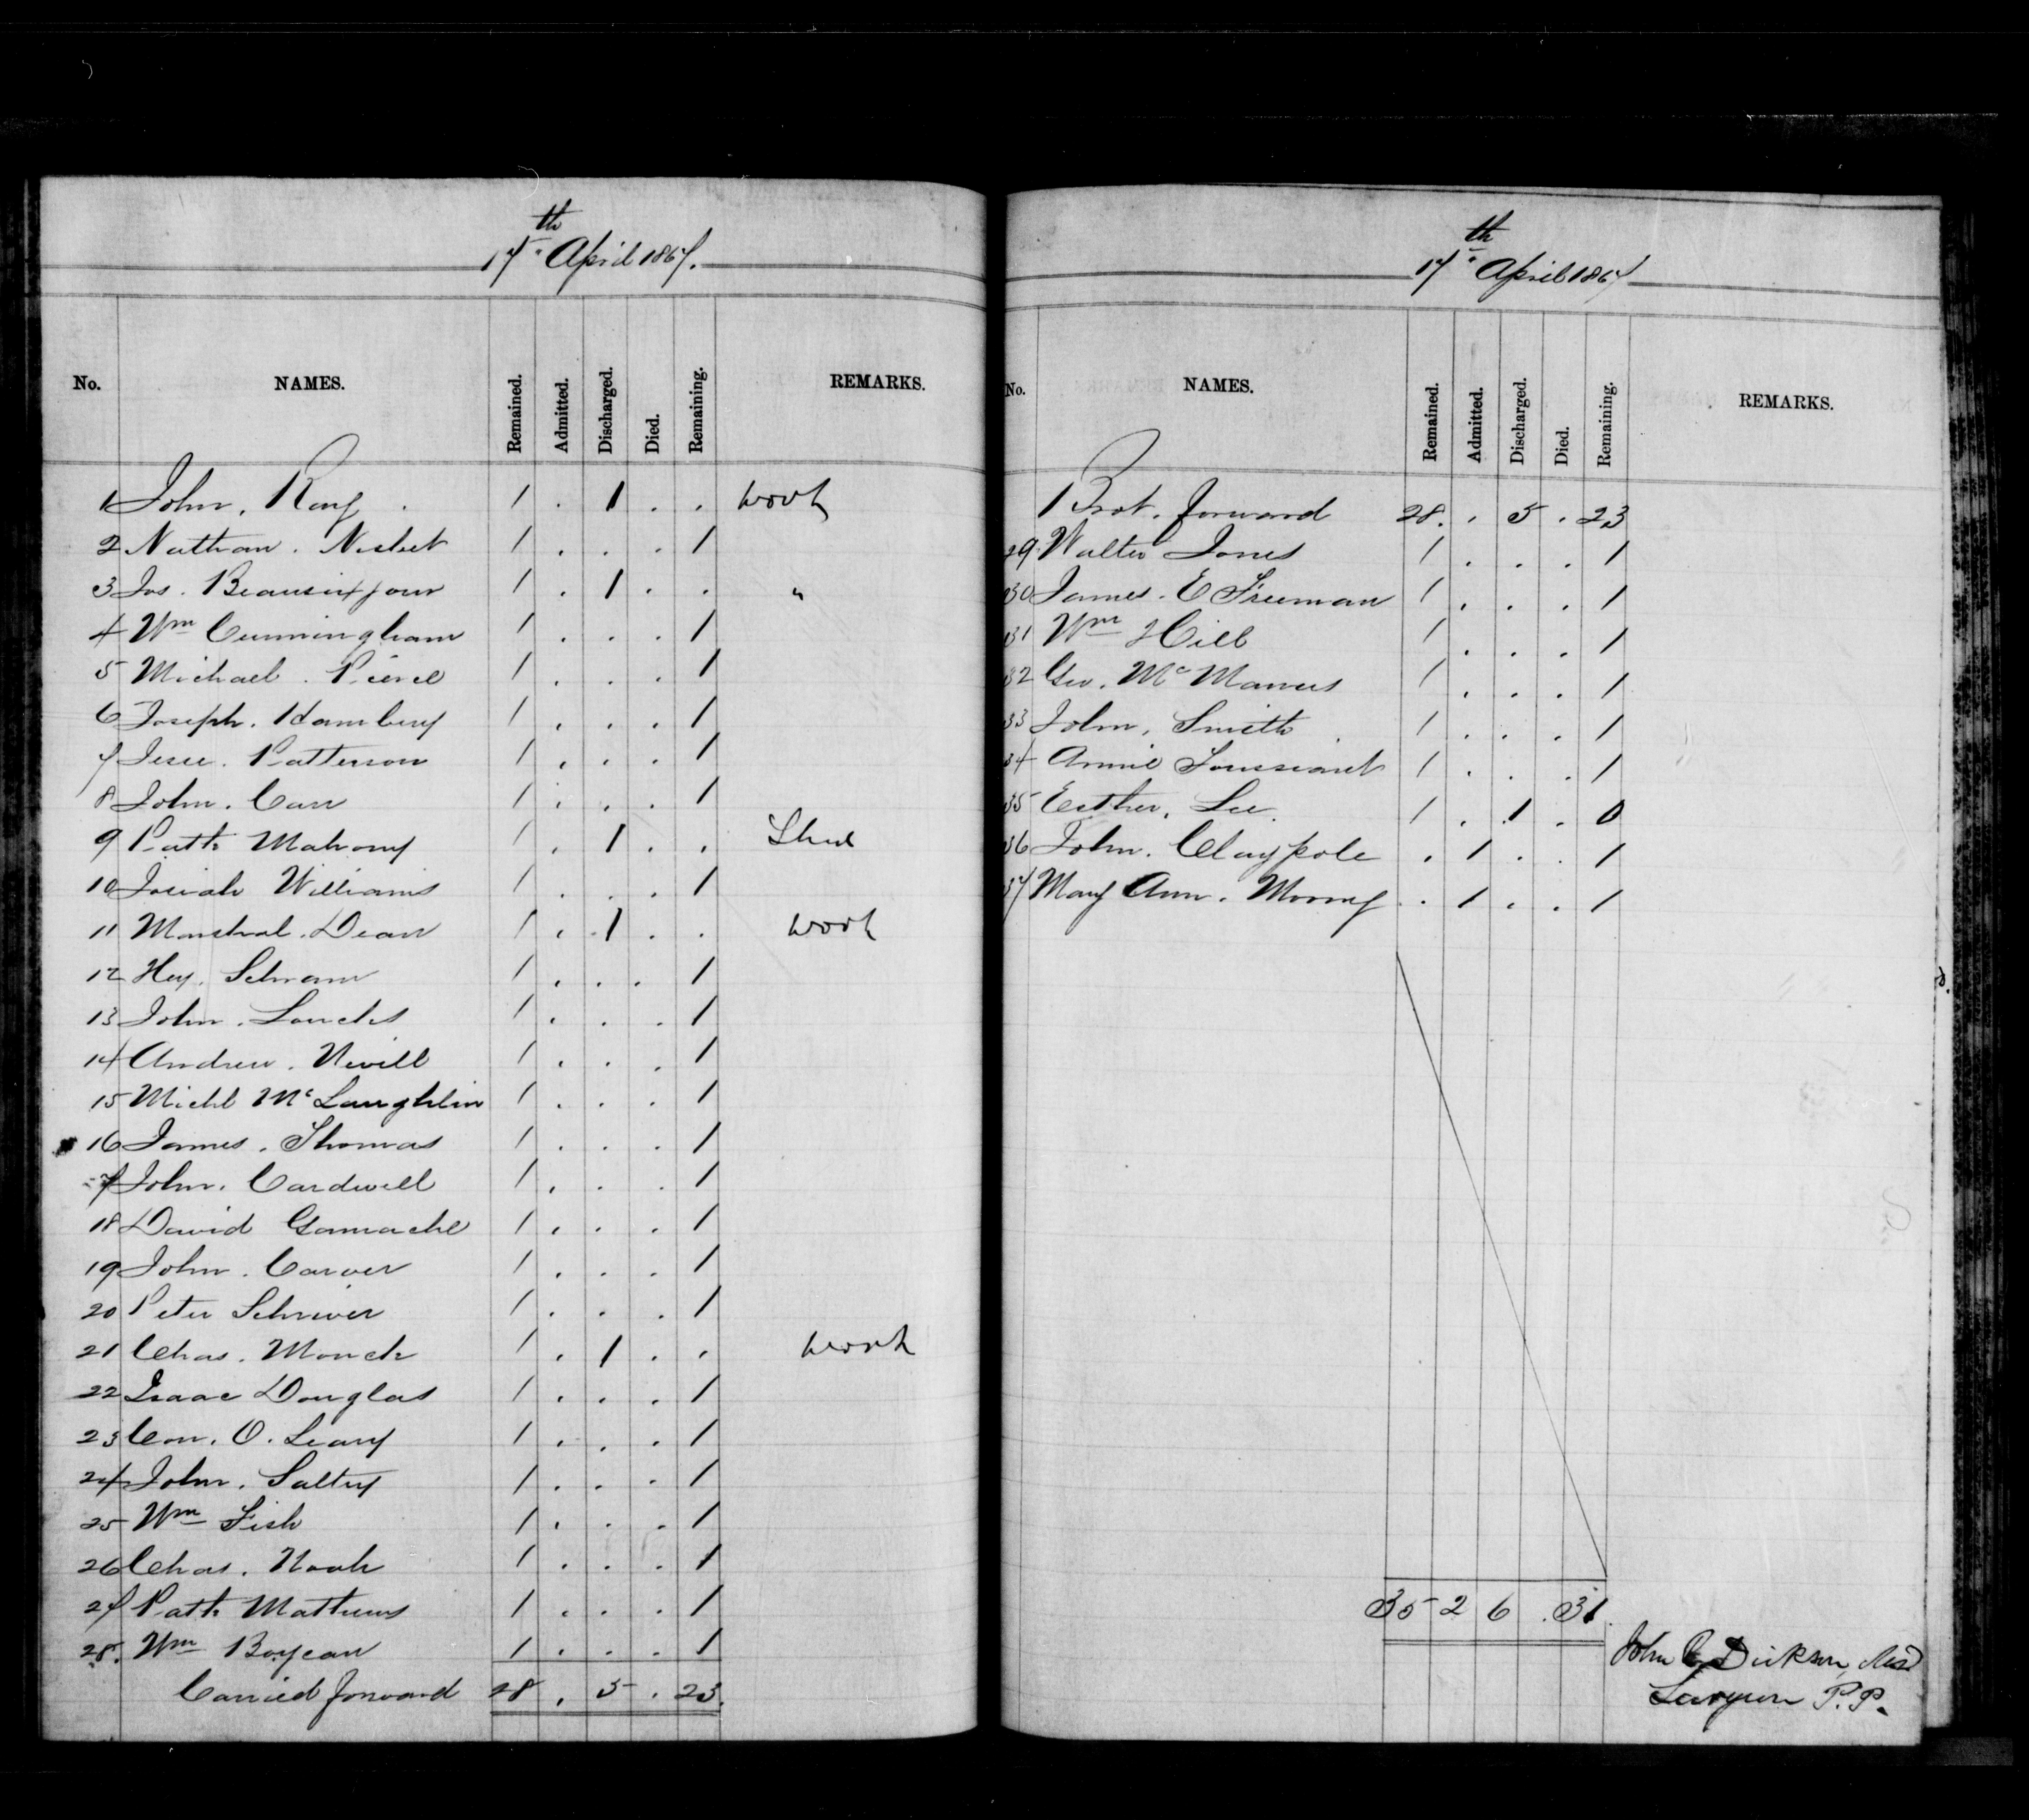 17th April 1867.
No. NAMES. Remained. Admitted. Discharged. Died. Remaining. REMARKS.
1 John. Ray 1 . 1 . . work
2 Nathan. Nisbet 1 . . . 1
3 Jos. Beausixjour 1 . 1 . . "
4 Wm Cunningham 1 . . . 1
5 Michael. Pierce 1 . . . 1
6 Joseph. Hambury 1 . . . 1
7 Jesse. Patterson 1 . . . 1
8 John. Carr 1 . . . 1
9 Patk Mahony 1 . 1 . . Shed
10 Josiah Williams 1 . . . 1
11 Marshal. Dean 1 . 1 . . work
12 Hey. Schram 1 . . . 1
13 John. Loucks 1 . . . 1
14 Andrew. Nevill 1 . . . 1
15 Michl McLaughlin 1 . . . 1
16 James. Thomas 1 . . . 1
17 John. Cardwell 1 . . . 1
18 David Gamache 1 . . . 1
19 John. Carver 1 . . . 1
20 Peter Schriver 1 . . . 1
21 Chas. Monck 1 . 1 . . work
22 Isaac Douglas 1 . . . 1
23 Con. O. Leary 1 . . . 1
24 John. Saltry 1 . . . 1
25 Wm Fish 1 . . . 1
26 Chas. Noah 1 . . . 1
27 Patk Mathews 1 . . . 1
28. Wm Boyean 1 . . . 1
Carried forward 28 . 5 . 23.
17th April 1867
No. NAMES. Remained. Admitted. Discharged. Died. Remaining. REMARKS.
Brot. forward 28. . 5 . 23
29 Walter Jones 1 . . . 1
30 James. E Freeman 1 . . . 1
31 Wm Hill 1 . . . 1
32 Geo. McManus 1 . . . 1
33 John. Smith 1 . . . 1
34 Annie Toussiant 1 . . . 1
35 Esther. Lee. 1 . 1 . 0
36 John. Claypole . 1 . . 1
37 Mary Ann. Mooney . 1 . . 1
35 2 6 . 31.
John R Dickson, MD
Surgeon P.P.